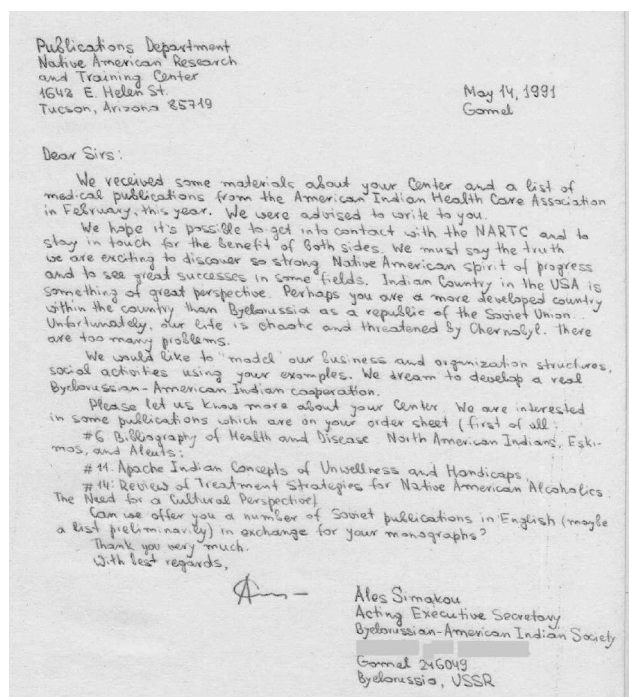 Publications Department
Native American Research
and Training Center
1642 E. Helen St.
Tucson, Arizona 85719
May 14, 1991
Gomel
Dear Sirs:
We received some materials about your Center and a list of
medical publications from the American Indian Health Care Association
in February, this year. We were advised to write to you.
We hope it's possible to get into contact with the NARTC and to
stay in touch for the benefit of both sides. We must say the truth
we are exciting to discover so strong Native American spirit of progress
and to see great successes in some fields. Indian Country in the USA is
something of great perspective. Perhaps you are a more developed country
within the country than Byelorussia as a republic of the Soviet Union.
Unfortunately, our life is chaotic and threatened by Chernobyl. There
are too many problems.
We would like to "model" our business and organization structures,
social activities using your examples. We dream to develop a real
Byelorussian-American Indian cooperation.
Please let us know more about your Center. We are interested
in some publications which are on your order sheet (first of all:
#6 Bibliography of Health and Disease North American Indians, Eski-
mos, and Aleuts;
#11: Apache Indian Concepts of Unwellness and Handicaps
#14: Review of Treatment Strategies for Native American Alcoholics:
The Need for a Cultural Perspective)
Can we offer you a number of Soviet publications in English (maybe
a list preliminarily) in exchange for your monographs?
Thank you very much.
With best regards,
Ales Simakou
Acting Executive Secretary
Byelorussian-American Indian Society
Gomel 246049
Byelorussia, USSR